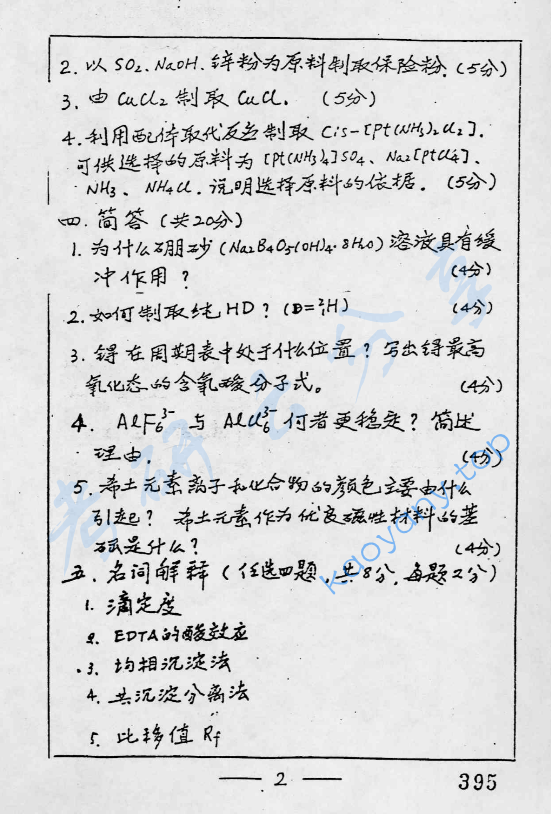 2. 以 SO₂、NaOH、锌粉为原料制取保险粉. (5分)
3. 由 CuCl₂ 制取 CuCl. (5分)
4. 利用配体取代反应制取 Cis-[Pt(NH₃)₂Cl₂].
可供选择的原料为 [Pt(NH₃)₄]SO₄、Na₂[PtCl₄]、
NH₃、NH₄Cl. 说明选择原料的依据. (5分)
四. 简答 (共20分)
1. 为什么硼砂 (Na₂B₄O₅(OH)₄·8H₂O) 溶液具有缓
冲作用? (4分)
2. 如何制取纯 HD? (D=²₁H) (4分)
3. 锝在周期表中处于什么位置? 写出锝最高
氧化态的含氧酸分子式。 (4分)
4. AlF₆³⁻ 与 AlCl₆³⁻ 何者更稳定? 简述
理由. (4分)
5. 希土元素离子和化合物的颜色主要由什么
引起? 希土元素作为优良磁性材料的基
础是什么? (4分)
五. 名词解释 (任选四题, 共8分, 每题2分)
1. 滴定度
2. EDTA的酸效应
3. 均相沉淀法
4. 共沉淀分离法
5. 比移值 Rf
— 2 —
395
考研云分享
kaoyany.top